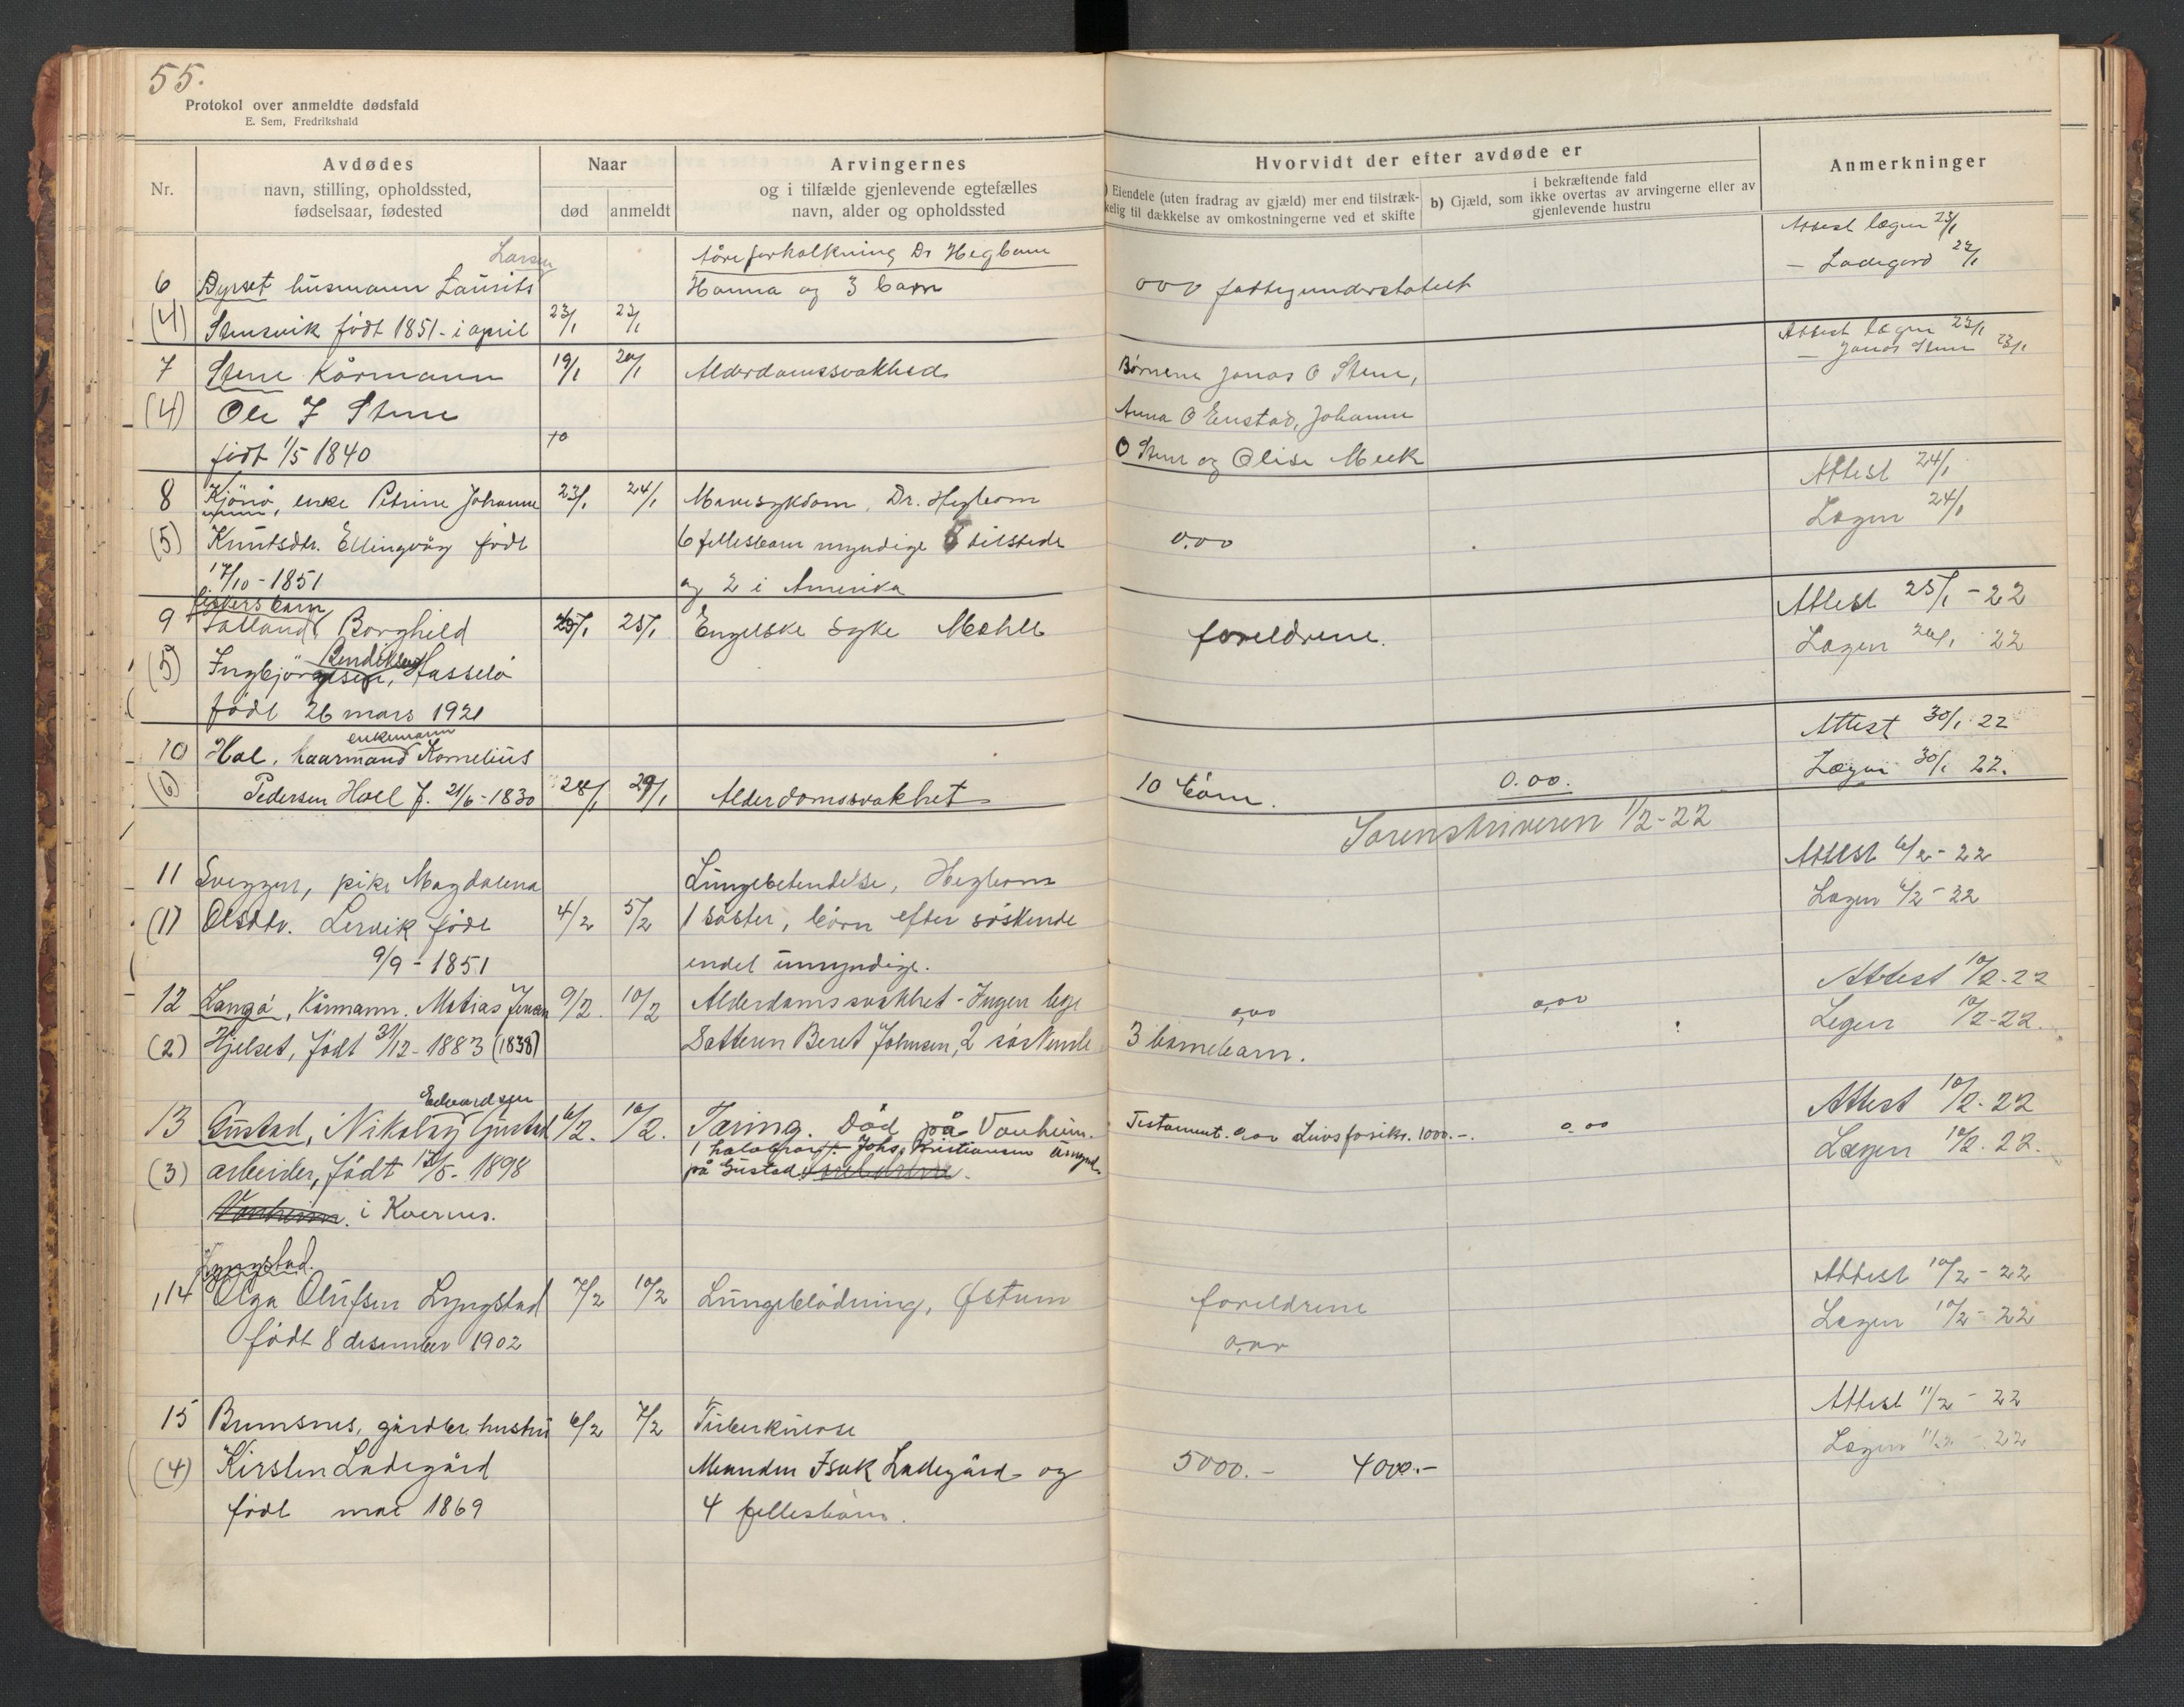 55.
Protokol over anmeldte dødsfald
E. Sem, Fredrikshald
Nr.
Avdødes
navn, stilling, opholdssted,
fødselsaar, fødested
Naar
død
anmeldt
Arvingernes
og i tilfælde gjenlevende egtefælles
navn, alder og opholdssted
Hvorvidt der efter avdøde er
) Eiendele (uten fradrag av gjæld) mer end tilstræk-
kelig til dækkelse av omkostningerne ved et skifte
b) Gjæld, som
i bekræftende fald
ikke overtas av arvingerne eller av
gjenlevende hustru
Anmerkninger
Larsen
Åreforkalkning Dr Hegbom
Attest lægen 23/1
6 Dyrset husmann Laurits
Hanna og 3 barn
0 0 0 fattigunderstøttet
— Ladegård 27/1
(4) Stensvik født 1851 - i april 23/1 23/1
7 Stene Kårmann 19/1 20/1 Alderdomssvakhed
Børnene Jonas O Stene,
Attest lægen 23/1
— Jonas Stene 23/1
(4) Ole J Stene
Anna O Enstad, Johanne
født 1/5 1840
O Stene og Olise Meek
8 Kjönö, enke Petrine Johanne 23/1 24/1 Mavesykdom, Dr. Hegbom
Attest 24/1
(5) Knutsdtr. Ellingvåg født
6 fellesbarn myndige 6 tilstede
0.00
Lægen 24/1
17/10 - 1851
og 2 i Amerika
fiskers barn
9 Borghild 25/1 25/1 Engelske syke Mohll
foreldrene.
Attest 25/1 - 22
Bendiksen
(5) Hasselø
Lægen 26/1 22
født 26 mars 1921
enkemann
10 Hol, kaarmand Kornelius
Attest 30/1 22
(6) Pedersen Holl f. 21/6 - 1830 28/1 29/1 Alderdomssvakhet
10 børn.
0.00.
Lægen 30/1 22.
Sorenskriveren 1/2-22
11 Sveggen, pike Magdalena
Lungebetendelse, Hegbom
Attest 6/2 - 22
(1) Olsdtr. Lervik født 4/2 5/2 1 søster, börn efter söskende
Lægen 6/2 - 22
9/9 - 1851
endel umyndige.
12 Langö, Kårmann. Matias Jensen 9/2. 10/2 Alderdomssvakhet - Ingen lege
0,00
0,00
Attest 10/2-22
(2) Hjelset, født 31/12 - 1883 (1838)
Datteren Beret Johnsen, 2 söskende
3 barnebarn.
Legen 10/2-22.
Edvardsen
13 Gustad, Nikolay Gustad 6/2. 10/2. Tæring. Död på Vonheim.
Testament. 0.00 Livsforsikr. 1000.-.
0.00
Attest 10/2-22
1 halvbror Johs. Kristiansen umynd.
(3) arbeider, født 12/5 - 1898
på Gustad.
Lægen 10/2. 22.
Vonheim. i Kvernes.
Lyngstad.
14 Olga Olufsen Lyngstad 7/2 10/2 Lungeblödning, Østum
foreldrene
Attest 10/2 - 22
født 8 desember 1902
0,00
Lægen 10/2 - 22
15 Bremsnes, gårdbr. hustru 6/2 7/2 Tuberkulose
Attest 11/2 - 22
(4) Kirsten Ladegård
Manden Isak Ladegård og
5000.- 4000.-
Lægen 11/2 - 22
født mai 1869
4 fellesbarn.